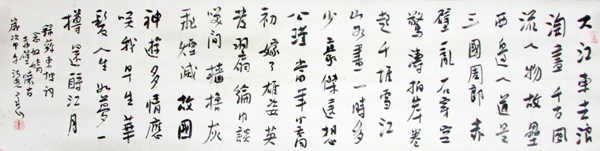 大江東去浪
淘盡千古風
流人物故壘
西邊人道是
三國周郎赤
壁亂石穿空
驚濤拍岸卷
起千堆雪江
山如畫一時多
少豪傑遥想
公瑾當年小喬
初嫁了雄姿英
發羽扇綸巾談
笑間檣櫓灰
飛煙滅故國
神遊多情應
笑我早生華
髮人生如夢一
樽還酹江月
蘇東坡詞
念奴嬌
赤壁懷古
歲次甲午